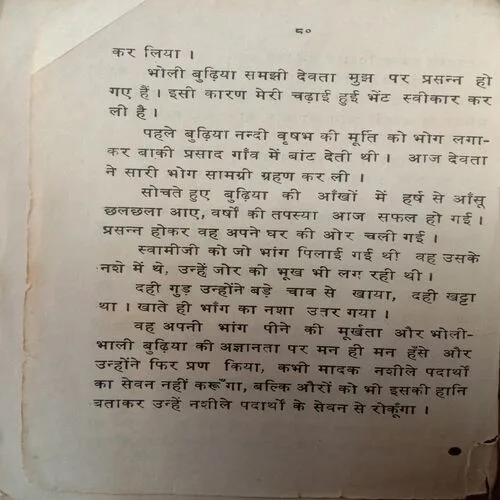 ८०
कर लिया ।
भोली बुढ़िया समझी देवता मुझ पर प्रसन्न हो
गए हैं । इसी कारण मेरी चढ़ाई हुई भेंट स्वीकार कर
ली है ।
पहले बुढ़िया नन्दी वृषभ की मूर्ति को भोग लगा-
कर बाकी प्रसाद गाँव में बांट देती थी । आज देवता
ने सारी भोग सामग्री ग्रहण कर ली ।
सोचते हुए बुढ़िया की आँखों में हर्ष से आँसू
छलछला आए, वर्षों की तपस्या आज सफल हो गई ।
प्रसन्न होकर वह अपने घर की ओर चली गई ।
स्वामीजी को जो भांग पिलाई गई थी वह उसके
नशे में थे, उन्हें जोर को भूख भी लग रही थी ।
दही गुड़ उन्होंने बड़े चाव से खाया, दही खट्टा
था । खाते ही भाँग का नशा उतर गया ।
वह अपनी भांग पीने की मूर्खता और भोली-
भाली बुढ़िया की अज्ञानता पर मन ही मन हँसे और
उन्होंने फिर प्रण किया, कभी मादक नशीले पदार्थों
का सेवन नहीं करूँगा, बल्कि औरों को भी इसकी हानि
बताकर उन्हें नशीले पदार्थों के सेवन से रोकूँगा ।